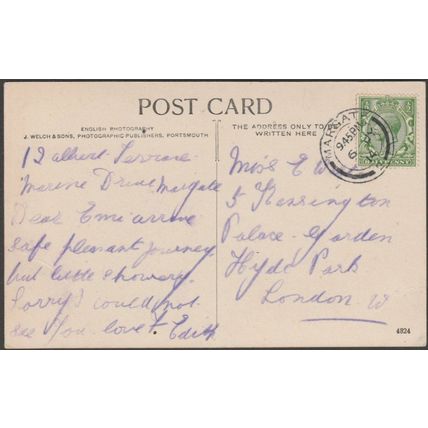 POST CARD
ENGLISH PHOTOGRAPHY
J. WELCH & SONS, PHOTOGRAPHIC PUBLISHERS, PORTSMOUTH
THE ADDRESS ONLY TO
WRITTEN HERE
MARGATE
9 45 PM
12 albert Terrace
Marine Drive Margate
Dear Emi arrive
safe pleasant journey
but little showery.
Sorry I could not
see you love f. Edith
Miss E W
5 Kensington
Palace Garden
Hyde Park
London W
4824